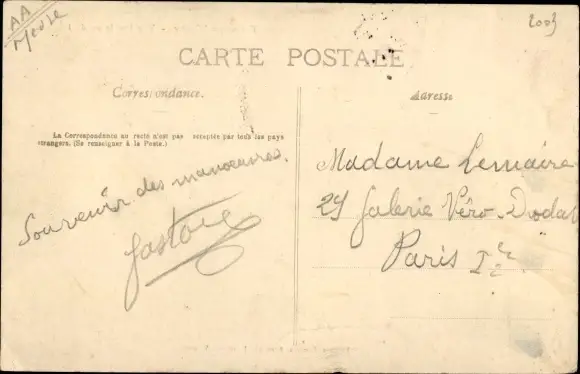 AA
Meuse
2003
CARTE POSTALE
Correspondance.
Adresse
La Correspondance au recto n'est pas acceptée par tous les pays
étrangers. (Se renseigner à la Poste.)
Souvenir des manoeuvres.
Madame Lemaire
Galerie Véro-Dodat
Paris Ier